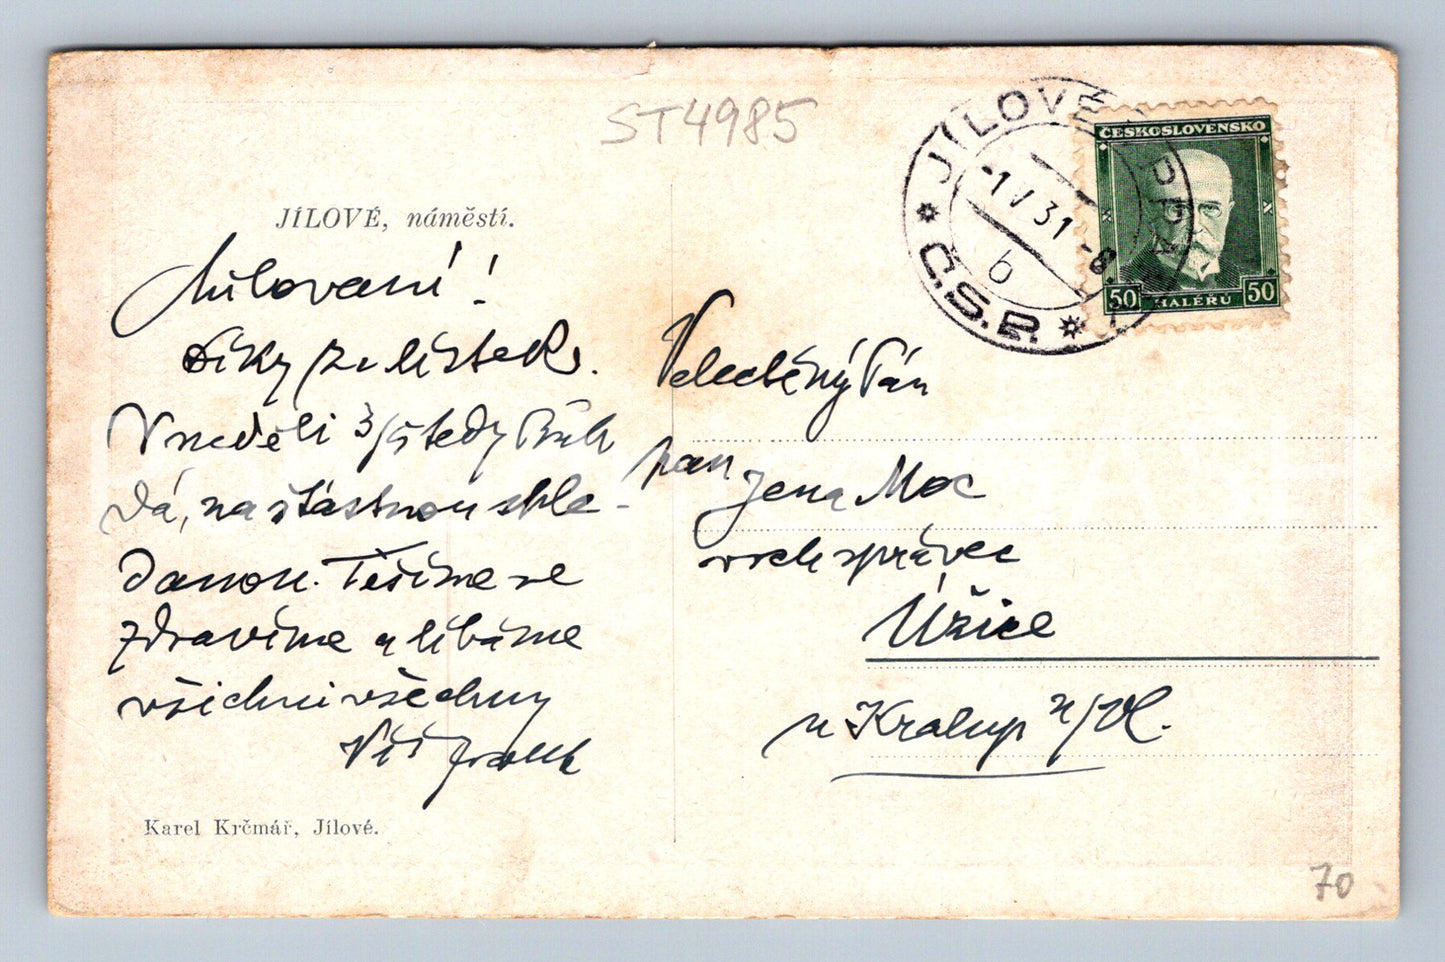 ST4985
JÍLOVÉ, náměstí.
JÍLOVÉ U PRAHY
-1 V 31 -8
b
Č.S.P.
ČESKOSLOVENSKO
50 HALÉŘŮ 50
Milovaní!
Díky za lístek.
V neděli 3/5 tedy Bůh
dá, na šťastnou shle-
danou. Těšíme se
zdravíme a líbáme
všichni všechny
Váš
Velectěný Pán
pan
Moc
vrch správec
Úžice
u Kralup n/Vl.
Karel Krčmář, Jílové.
70